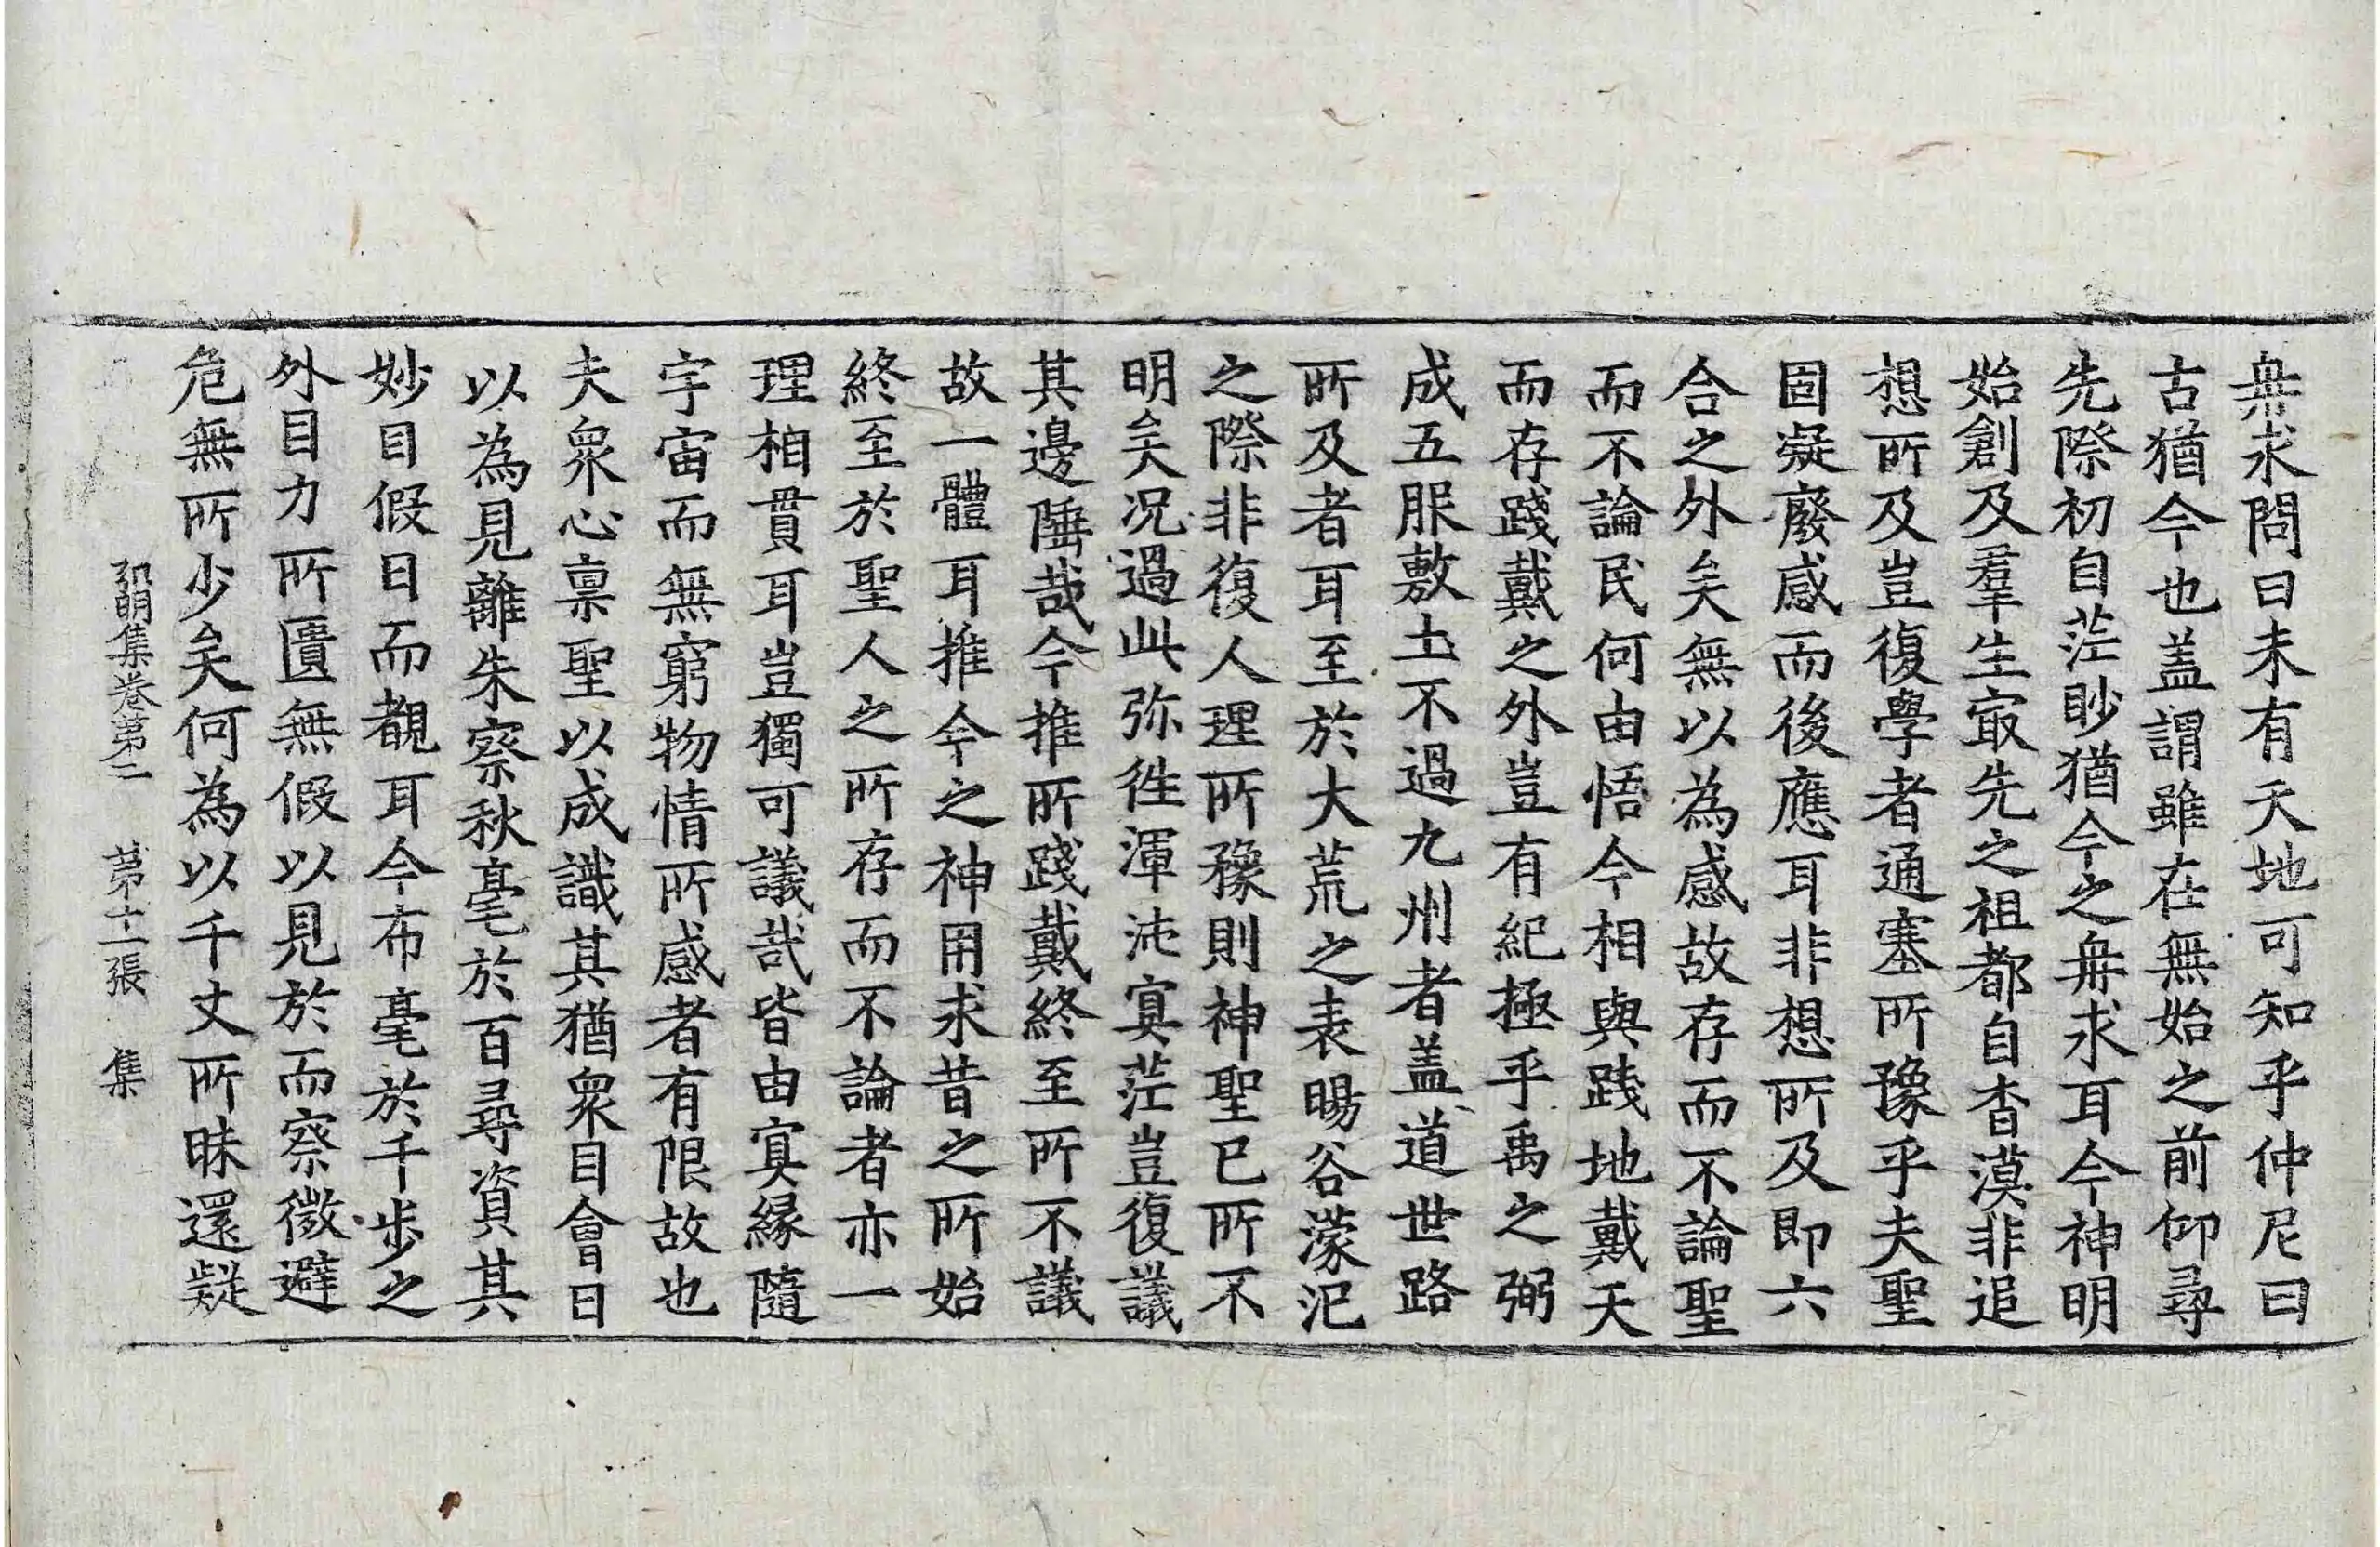 冉求問曰未有天地可知乎仲尼曰
古猶今也盖謂雖在無始之前仰尋
先際初自茫眇猶今之冉求耳今神明
始創及羣生㝡先之祖都自杳漠非追
想所及豈復學者通塞所豫乎夫聖
固凝廢感而後應耳非想所及即六
合之外矣無以為感故存而不論聖
而不論民何由悟今相與践地戴天
而存踐戴之外豈有紀極乎禹之弼
成五服敷土不過九州者盖道世路
所及者耳至於大荒之表暘谷濛汜
之際非復人理所豫則神聖已所不
明矣况過此弥徃渾沌㝠茫豈復議
其邊陲哉今推所踐戴終至所不議
故一體耳推今之神用求昔之所始
終至於聖人之所存而不論者亦一
理相貫耳豈獨可議哉皆由㝠緣隨
宇宙而無窮物情所感者有限故也
夫衆心禀聖以成識其猶衆目會日
以為見離朱察秋毫於百尋資其
妙目假日而覩耳今布毫於千步之
外目力所匱無假以見於而察微避
危無所少矣何為以千丈所昧還疑
弘明集卷第二 第十二張 集